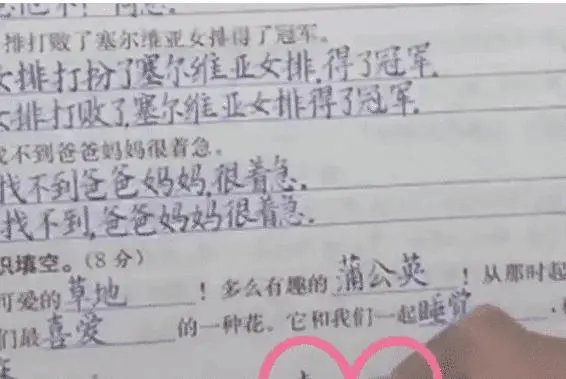 排打败了塞尔维亚女排得了冠军。
女排打扮了塞尔维亚女排,得了冠军.
女排打败了,塞尔维亚女排得了冠军.
找不到爸爸妈妈很着急。
找不到爸爸妈妈,很着急.
找不到,爸爸妈妈很着急.
识填空。(8分)
可爱的草地!多么有趣的蒲公英!从那时起
们最喜爱的一种花。它和我们一起睡觉